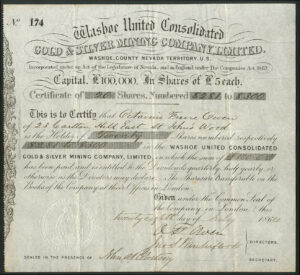 No. 174
Washoe United Consolidated
GOLD & SILVER MINING COMPANY, LIMITED.
WASHOE, COUNTY NEVADA TERRITORY, U.S.
Incorporated under an Act of the Legislature of Nevada, and in England under The Companies Act, 1862.
Capital, £100,000, In Shares of £5 each.
Certificate of 20 Shares, Numbered 3281 to 3300
This is to Certify that Octavius Freire Owen
of 23 Carlton Hill East St John's Wood
is the Holder of Twenty Shares numbered respectively
3281 to 3300 in the WASHOE UNITED CONSOLIDATED
GOLD & SILVER MINING COMPANY, LIMITED in which the sum of
has been paid, and is entitled to the Dividends quarterly, half yearly, or
otherwise as the Directors may declare. The Shares are Transferable on the
Books of the Company at their Offices in London.
Given under the Common Seal of
the Company, in London, this
day of July
DIRECTORS.
SEALED IN THE PRESENCE OF
SECRETARY.